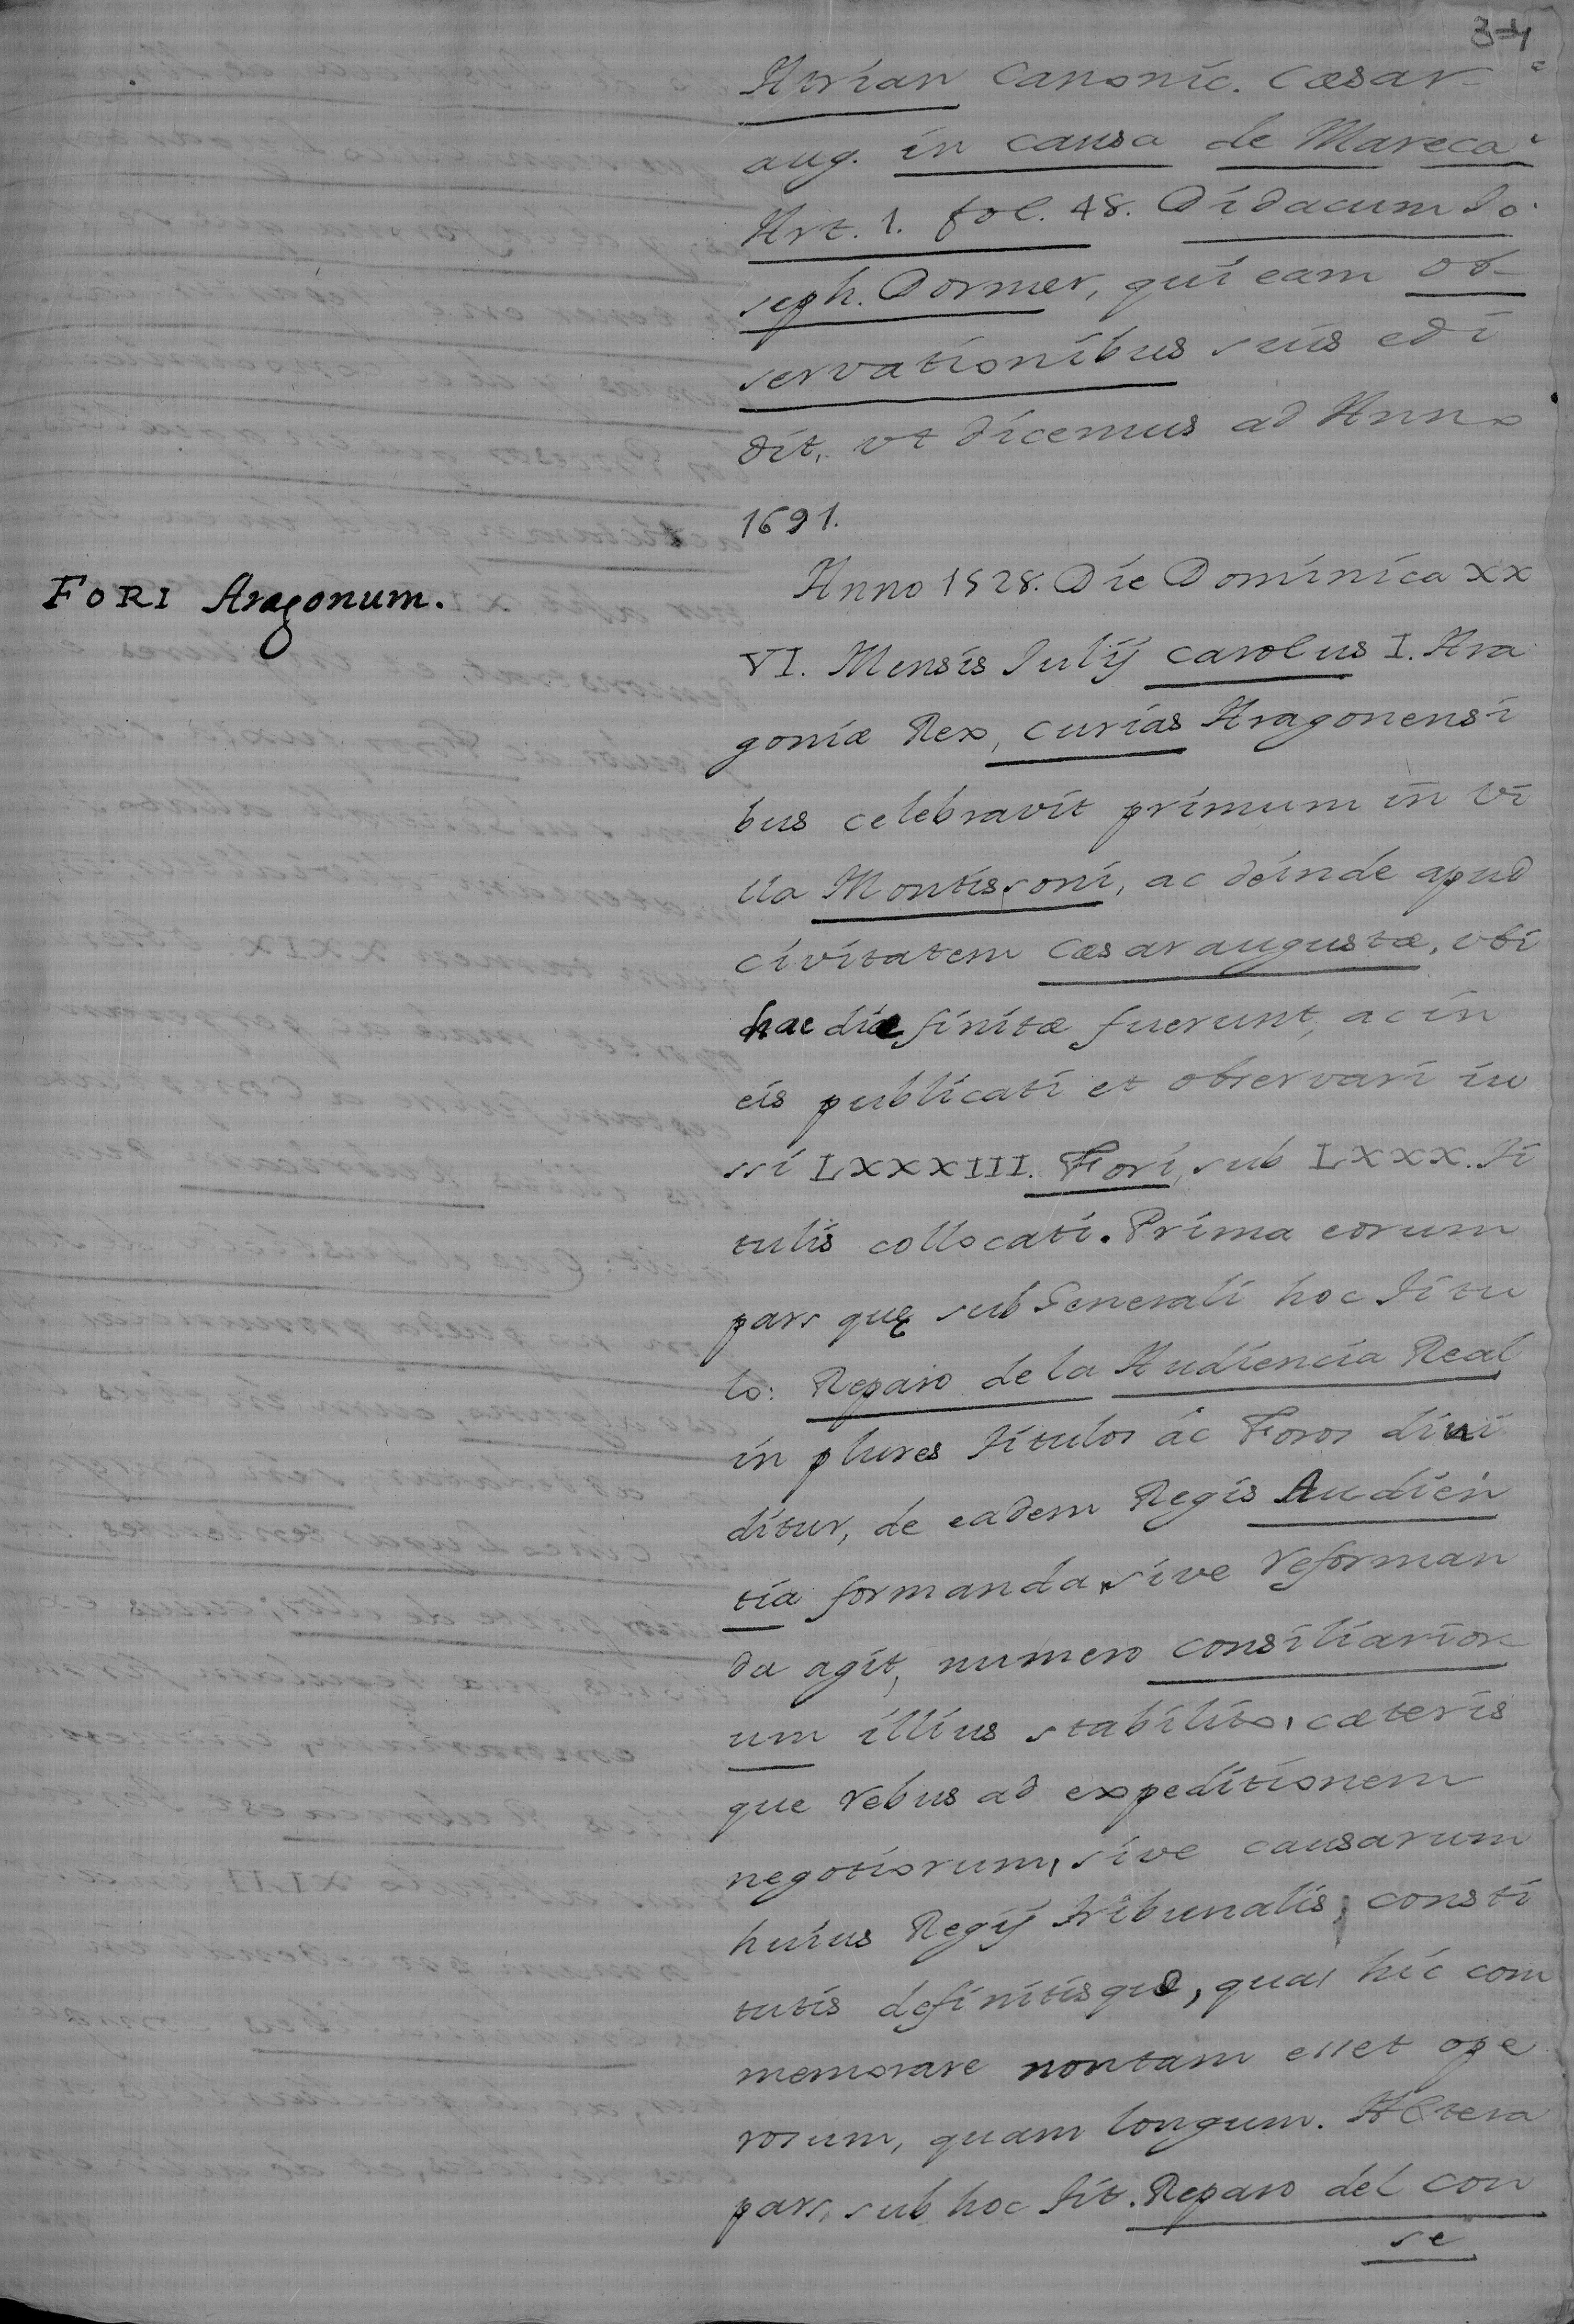 34
Avian canonic. Cæsar-
aug. in causa de Mareca
Art. 1. fol. 48. Didacum Jo-
seph. Dormer, qui eam ob-
servationibus suis edi
dit, vt dicemus ad Anno
1691.
FORI Aragonum.
Anno 1528. Die Dominica XX
VI. Mensis Julij Carolus I. Ara
goniæ Rex, curias Aragonensi
bus celebravit primum in vi
lla Montissoni, ac deinde apud
civitatem Cæsaraugustæ, vbi
hac die finitæ fuerunt, ac in
eis publicati et observari iu
ssi LXXXIII. Fori, sub LXXX. Ti
tulis collocati. Prima eorum
pars quę sub Generali hoc Titu
lo: Reparo de la Audiencia Real
in plures Titulos ac Foros divi
ditur, de eadem Regis Audien
tia formanda, sive reforman
da agit, numero consiliarior-
um illius stabilito, cæteris
que rebus ad expeditionem
negotiorum, sive causarum
huius Regij tribunalis, consti
tutis definitisque, quas hic com
memorare non tam esset ope
rosum, quam longum. Altera
pars, sub hoc Tit. Reparo del con
se